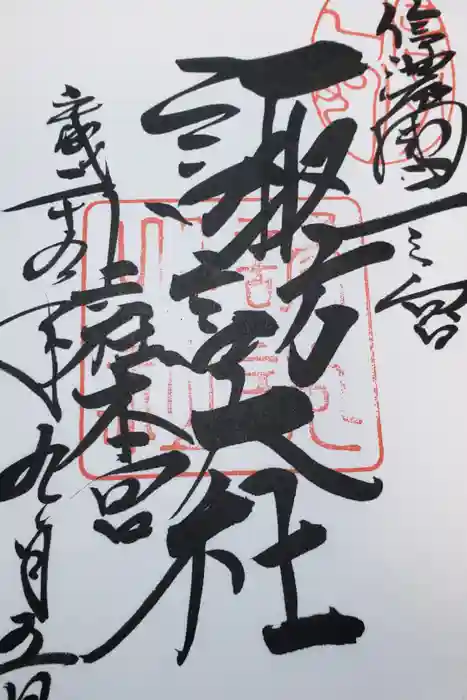 信濃國一之宮
諏訪大社
上社本宮
平成二十年九月五日